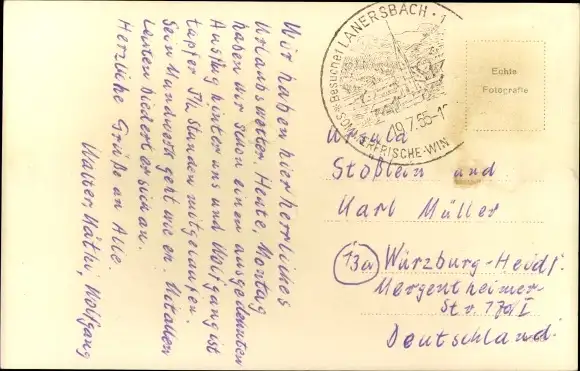 Wir haben hier herrliches
Urlaubswetter. Heute, Montag
haben wir schon einen ausgedehnten
Ausflug hinter uns und Wolfgang ist
tapfer 3½ Stunden mitgelaufen.
Sein Mundwerk geht wie er. Mit allen
Leuten biedert er sich an.
Herzliche Grüße an Alle
Walter, Käthi, Wolfgang
Besuchet LANERSBACH · 1
SOMMERFRISCHE-WIN
19.7.55-1
Echte
Fotografie
Ursula
Stoßlein und
Karl Müller
13a Würzburg-Heidf.
Mergentheimer-
Str. I
Deutschland